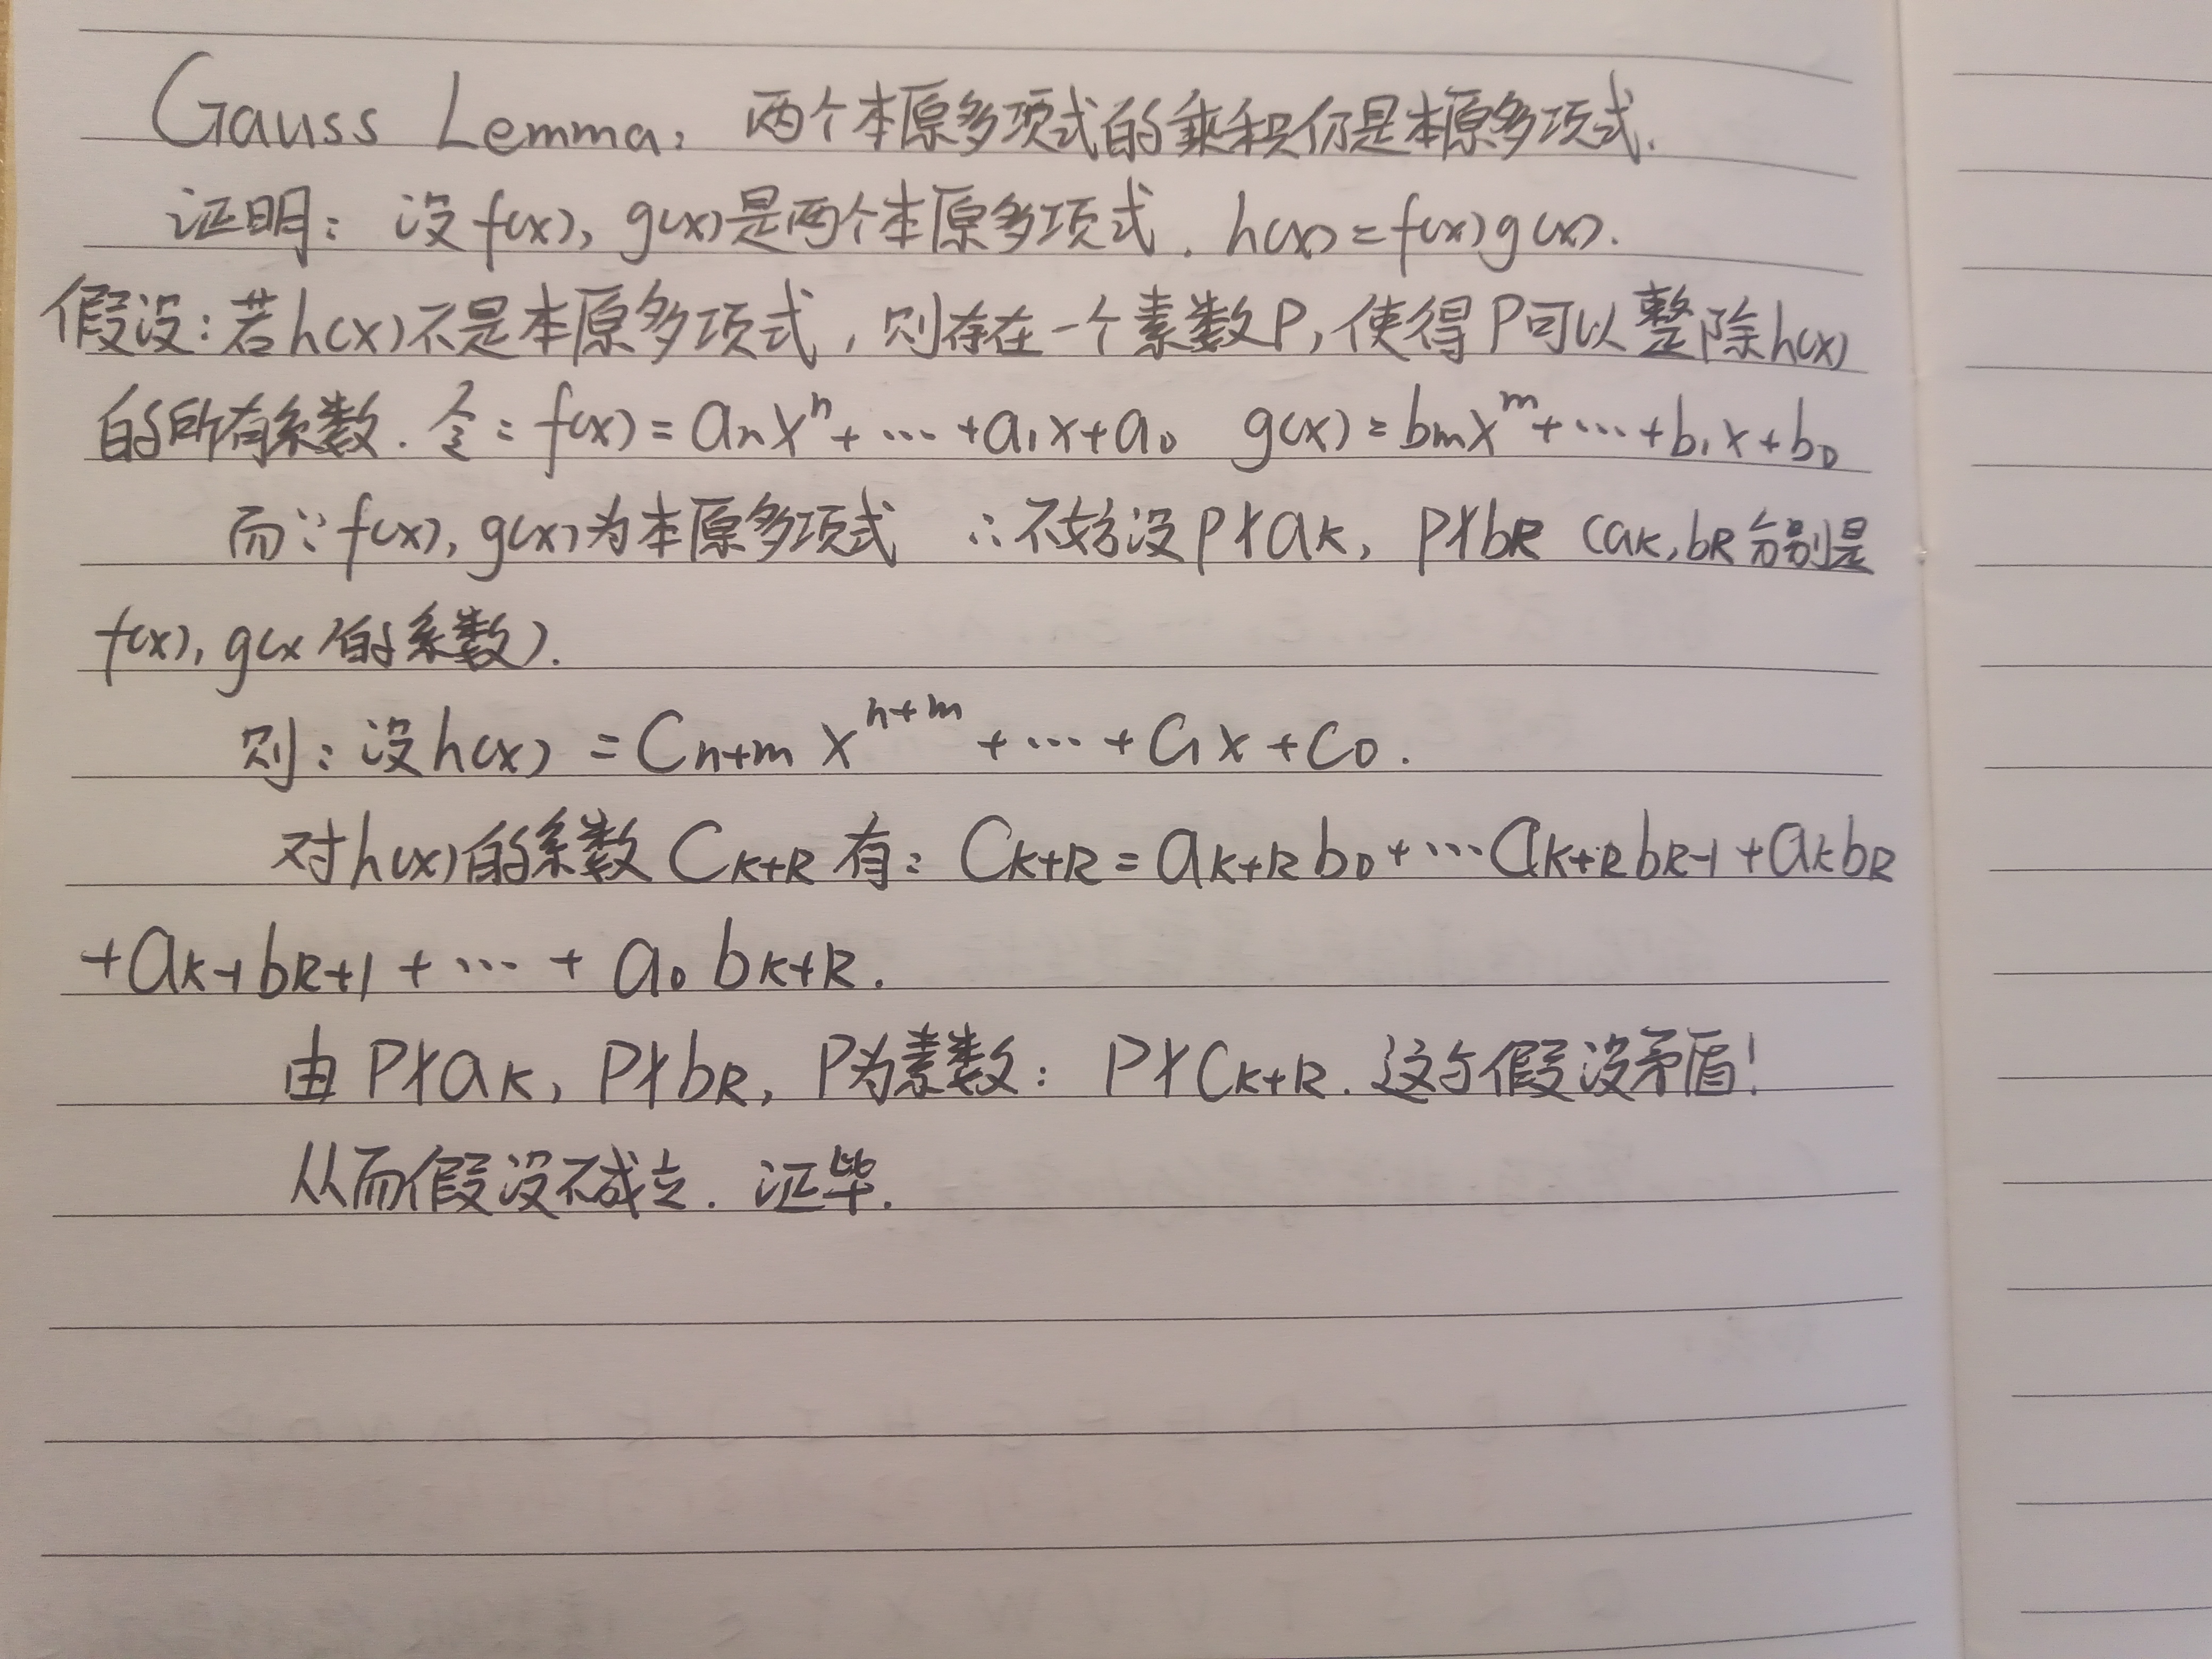 Gauss Lemma: 两个本原多项式的乘积仍是本原多项式.
证明: 设f(x), g(x)是两个本原多项式. h(x)=f(x)g(x).
假设:若h(x)不是本原多项式,则存在一个素数P,使得P可以整除h(x)
的所有系数. 令: f(x)=aₙxⁿ+…+a₁x+a₀ g(x)=bₘxᵐ+…+b₁x+b₀
而∵f(x), g(x)为本原多项式 ∴不妨设P∤aK, P∤bR (aK,bR分别是
f(x), g(x)的系数).
则: 设h(x)=Cₙ₊ₘxⁿ⁺ᵐ+…+C₁x+C₀.
对h(x)的系数CK+R有: CK+R=aK+Rb₀+…aK+RbR-1+aKbR
+aK-1bR+1+…+a₀bK+R.
由P∤aK, P∤bR, P为素数: P∤CK+R. 这与假设矛盾!
从而假设不成立. 证毕.